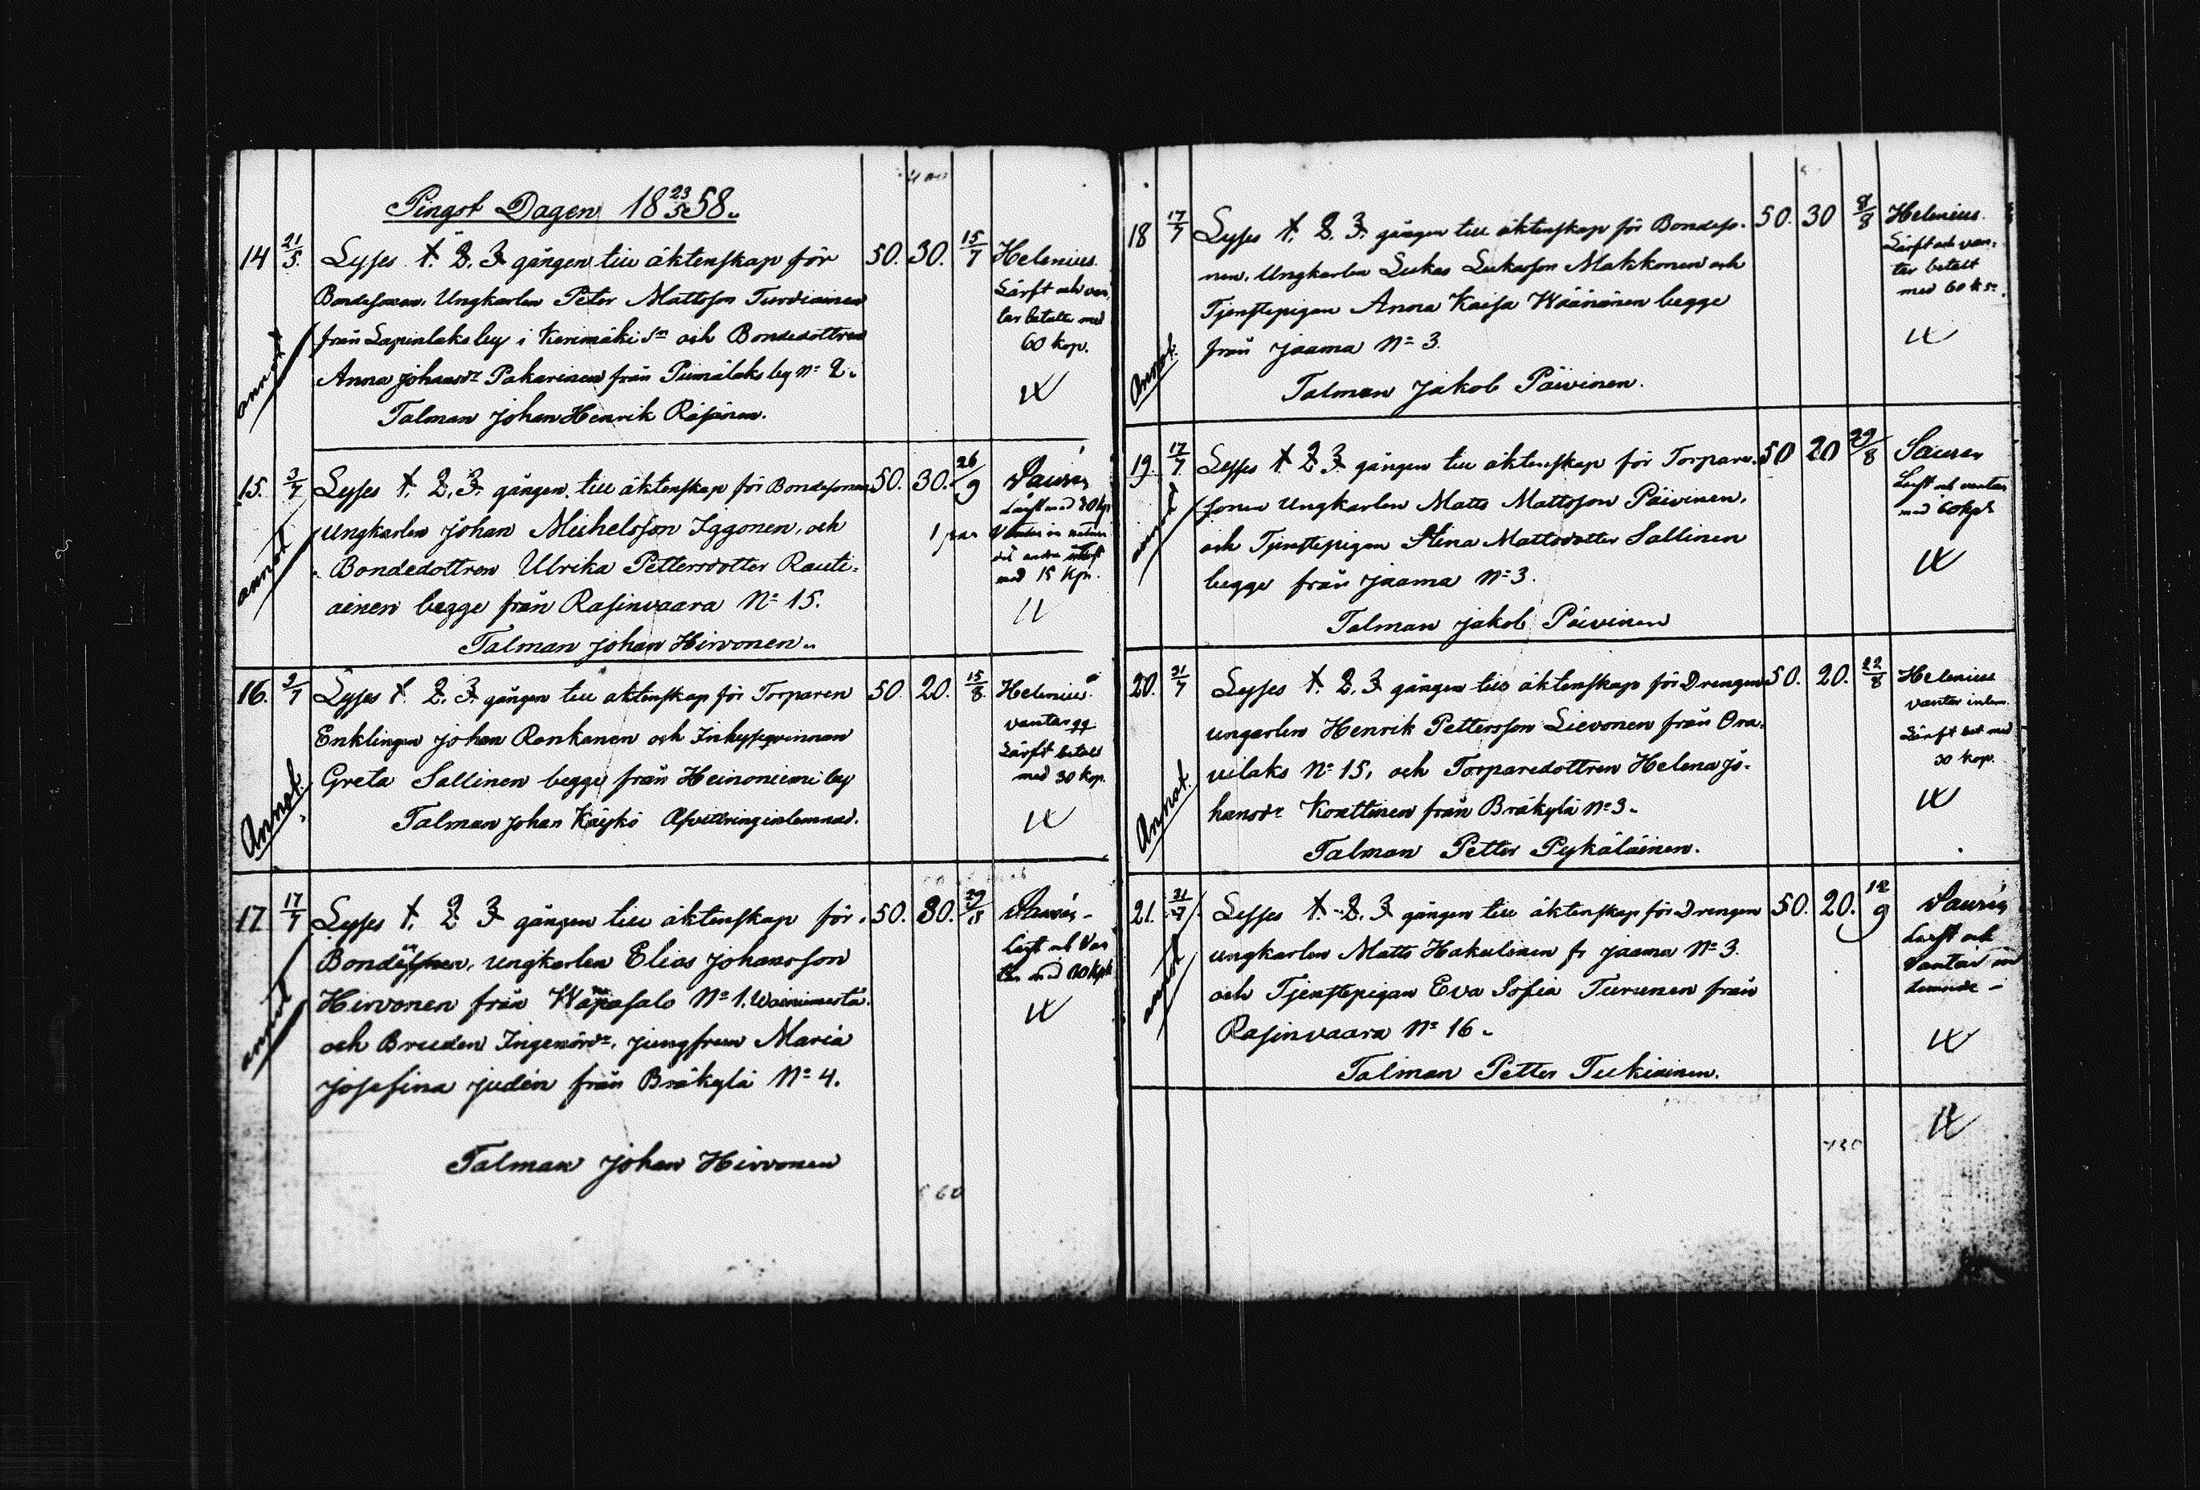 Pingst Dagen 18 23/5 58.
14 21/5. Lyses 1. 2. 3 gången till äktenskap för 50. 30. 15/7 Helenius
Bondesonen, Ungkarlen Peter Mattsson Turdiainen Lärft och van
från Lapinlaks by i Kerimäki Sn och Bondedottren tar betalta med
60 kop.
Anna Johansdr Pakarinen från Pimälaks by No 2.
annot
Talman Johan Henrik Räsänen.
15. 3/7 Lyses 1. 2. 3. gången till äktenskap för Bondesonen 50. 30. 26/9
Lärft med 30 kp
Ungkarlen Johan Michelsson Iggonen, och 1 par
Bondedottren Ulrika Pettersdotter Rauti-
med 15 Kp.
annot
ainen begge från Rasinvaara No 15.
Talman Johan Hirvonen..
16. 3/7 Lyses 1. 2. 3 gången till äktenskap för Torparen 50. 20. 15/8 Helenius
Enklingen Johan Ronkanen och Inhysqvinnan vantar
Greta Sallinen begge från Heinoniemi by Lärft betalt
med 30 kop.
Annot.
Talman Johan Käykö Afvittring inlemnad.
17. 17/7 Lyses 1. 2 3 gången till äktenskap för 50. 30. 29/8
Bonden, ungkarlen Elias Johansson
Hirvonen från Wäpäsalo No 1. Wäinimestä
och Bruden Ingeniördr, jungfrun Maria
annot
Josefina Judén från Bräkylä No 4.
Talman Johan Hirvonen
60
18 17/7 Lyses 1. 2. 3. gången till äktenskap för Bondeso- 50. 30 8/8 Helenius
nen, Ungkarlen Lukas Lukasson Makkonen och Lärft och van-
tar betalt
Tjenstepigan Anna Kaisa Wäänänen begge med 60 kp.
från Jaama No 3.
Annot.
Talman Jakob Päivinen.
19. 17/7 Lyses 1 2 3 gången till äktenskap för Torpare- 50 20 29/8
sonen Ungkarlen Matts Mattsson Päivinen, Lärft och vantar
med 60 kp
och Tjenstepigan Stina Mattsdotter Sallinen
annot
begge från Jaama No 3.
Talman Jakob Päivinen
20. 31/7 Lyses 1. 2. 3 gången till äktenskap för Drengen 50. 20. 22/8 Helenius
vantar inlem.
ungarlen Henrik Pettersson Lievonen från Ora- Lärft bet med
vilaks No 15, och Torparedottren Helena Jo- 30 kop.
hansdr Kosttinen från Bräkylä No 3.
Annot.
Talman Petter Pykäläinen.
21. 31/7. Lyses 1. 2. 3 gången till äktenskap för Drengen 50. 20. 12/9
ungkarlen Matts Hakulinen fr Jaama No 3 Lärft och
och Tjenstepigan Eva Sofia Turunen från Vantar
annot
Rasinvaara No 16.
Talman Petter Tukiainen.
730